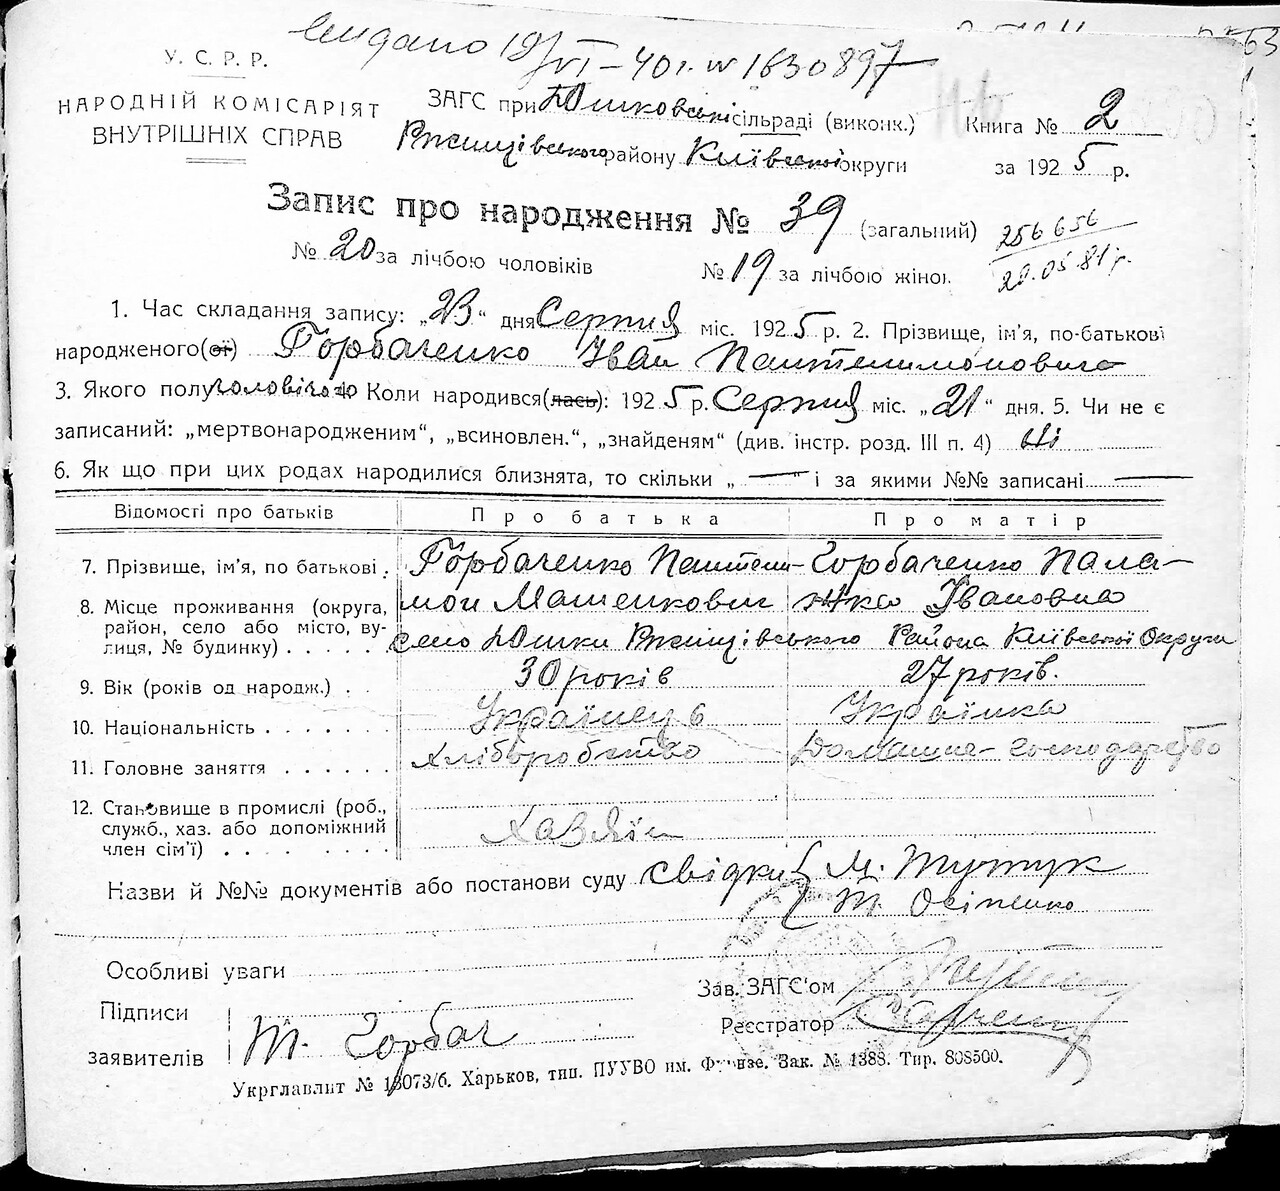 видано 19/VI-40 р. № 1630897
У. С. Р. Р.
НАРОДНІЙ КОМІСАРІЯТ
ВНУТРІШНІХ СПРАВ
ЗАГС при Юшковській сільраді (виконк.)
Ржищівського району Київської округи
Книга № 2
за 1925 р.
Запис про народження № 39 (загальний)
256656
20.05.81 р.
№ 20 за лічбою чоловіків № 19 за лічбою жінок.
1. Час складання запису: „23“ дня Серпня міс. 1925 р. 2. Прізвище, ім'я, по-батькові
народженого(ої) Горбаченко Іван Пантелимонович
3. Якого полу чоловічого 4. Коли народився(лась): 1925 р. Серпня міс. „21“ дня. 5. Чи не є
записаний: „мертвонародженим“, „всиновлен.“, „знайденям“ (див. інстр. розд. III п. 4) Ні
6. Як що при цих родах народилися близнята, то скільки „—“ і за якими №№ записані —
Відомості про батьків Про батька Про матір
7. Прізвище, ім'я, по батькові . Горбаченко Пантели- Горбаченко Пала-
8. Місце проживання (округа, мон жка Івановна
район, село або місто, ву-
лиця, № будинку) . . . . . село Юшки Ржищівського Района Київської Округи
9. Вік (років од народж.) . . 30 років 27 років.
10. Національність . . . . . . . Українець Українка
11. Головне заняття . . . . . . Хліборобство Домашнє-господарство
12. Становище в промислі (роб.,
служб., хаз. або допоміжний Хазяїн
член сім'ї) . . . . . . .
Назви й №№ документів або постанови суду свідки М.
Т. Осіпенко
Особливі уваги
Зав. ЗАГС'ом
Підписи
Реєстратор
заявителів Т. Горбач
Укрглавлит № 13073/6. Харьков, тип. ПУУВО им. Фрунзе. Зак. № 1388. Тир. 808500.